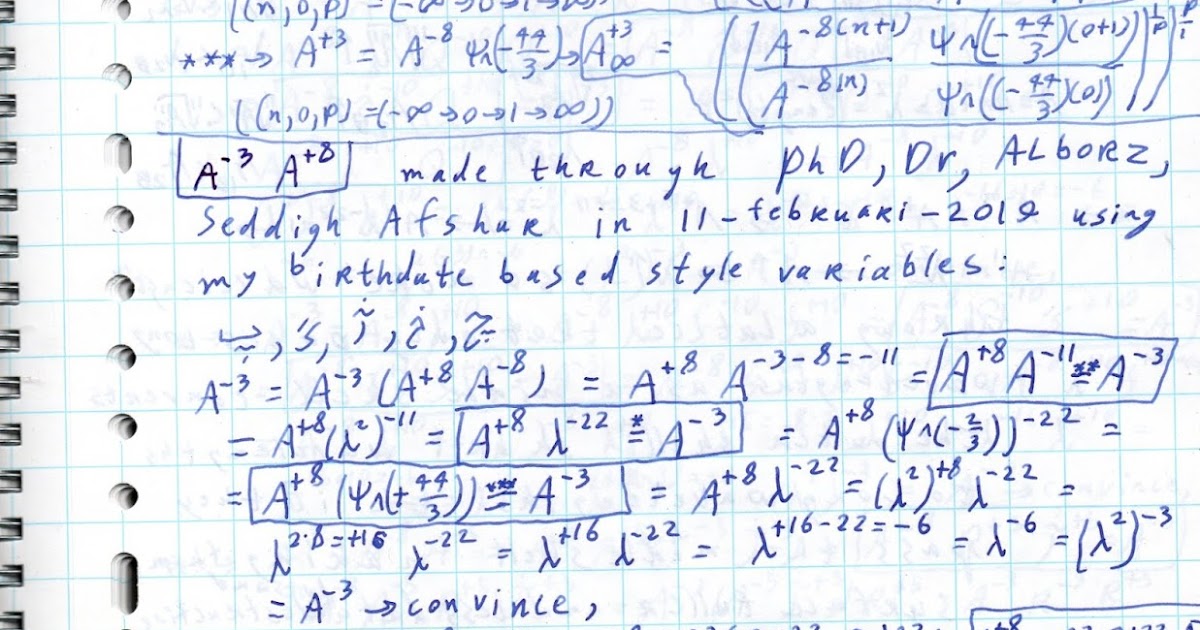 ((n,0,p)=(-∞→0→1→∞))
***→ A⁺³ = A⁻⁸ Ψ٨(-44/3)→ A∞⁺³ = ((A⁻⁸⁽ⁿ⁺¹⁾/A⁻⁸⁽ⁿ⁾ Ψ٨((-44/3)(0+1))/Ψ٨((-44/3)(0)))^(1/p))^(p/1)
((n,0,p)=(-∞→0→1→∞))
A⁻³ A⁺⁸ made through PhD, Dr, ALBORZ,
Seddigh Afshar in 11-februari-2019 using
my birthdate based style variables:
A⁻³ = A⁻³ (A⁺⁸ A⁻⁸) = A⁺⁸ A^(-3-8=-11) = A⁺⁸ A⁻¹¹ **= A⁻³
= A⁺⁸(λ²)⁻¹¹ = A⁺⁸ λ⁻²² *= A⁻³ = A⁺⁸ (Ψ٨(-2/3))⁻²² =
= A⁺⁸ (Ψ٨(+44/3)) ***= A⁻³ = A⁺⁸ λ⁻²² = (λ²)⁺⁸ λ⁻²² =
λ^(2·8=+16) λ⁻²² = λ⁺¹⁶ λ⁻²² = λ^(+16-22=-6) = λ⁻⁶ = (λ²)⁻³
= A⁻³ → convince,